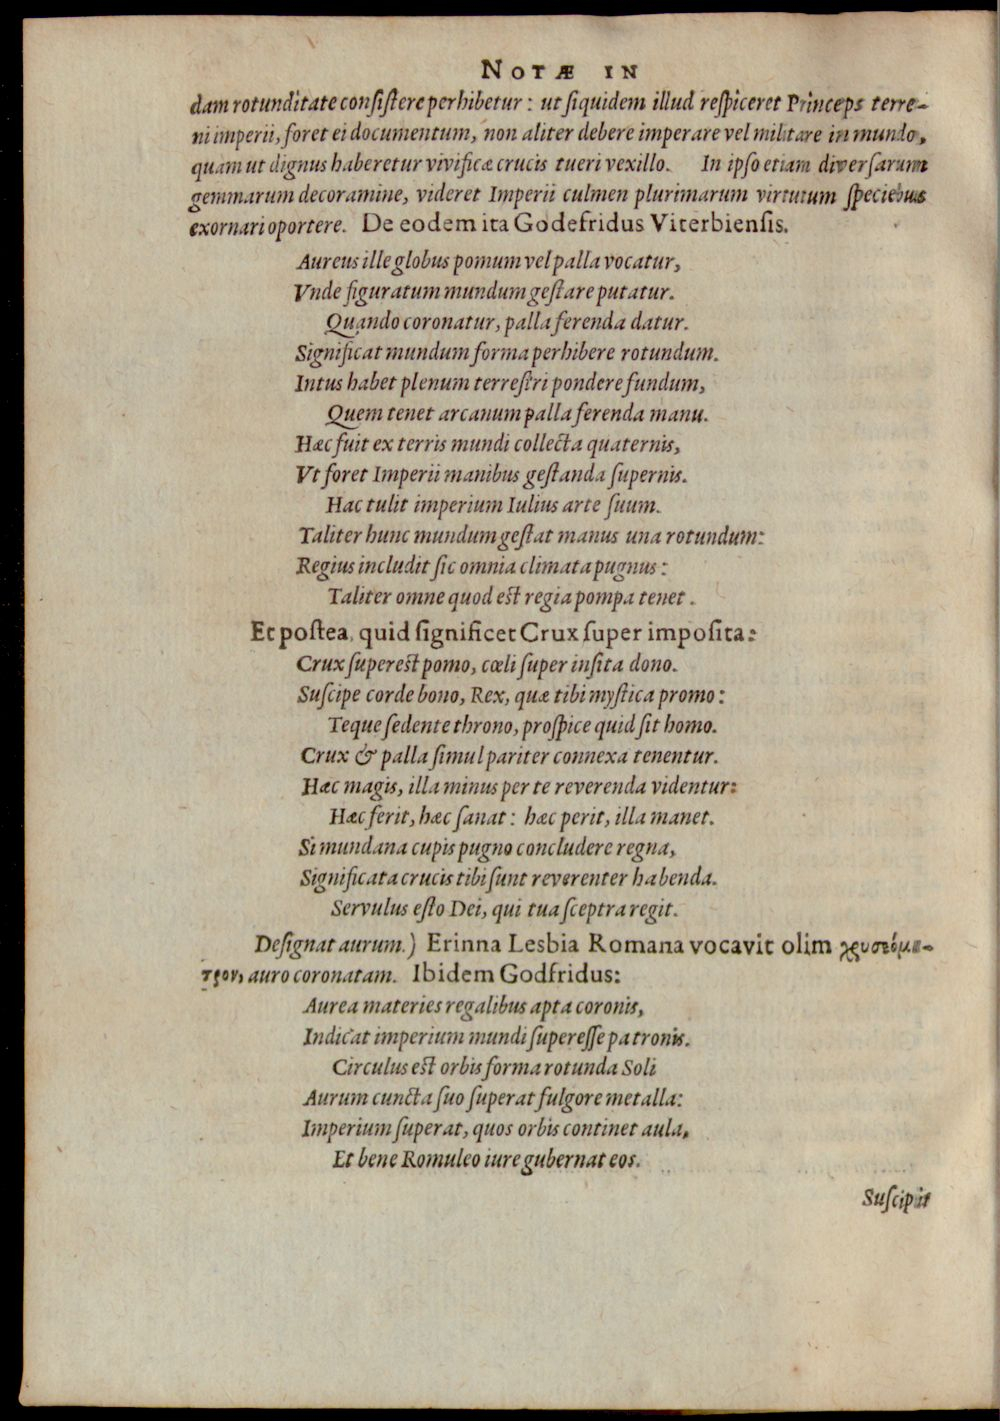 NOTÆ IN
dam rotunditate consistere perhibetur: ut siquidem illud respiceret Princeps terre-
ni imperii, foret ei documentum, non aliter debere imperare vel militare in mundo,
quam ut dignus haberetur vivificæ crucis tueri vexillo. In ipso etiam diversarum
gemmarum decoramine, videret Imperii culmen plurimarum virtutum speciebus
exornari oportere. De eodem ita Godefridus Viterbiensis.
Aureus ille globus pomum vel palla vocatur,
Vnde figuratum mundum gestare putatur.
Quando coronatur, palla ferenda datur.
Significat mundum forma perhibere rotundum.
Intus habet plenum terrestri pondere fundum,
Quem tenet arcanum palla ferenda manu.
Hæc fuit ex terris mundi collecta quaternis,
Vt foret Imperii manibus gestanda supernis.
Hac tulit imperium Iulius arte suum.
Taliter hunc mundum gestat manus una rotundum:
Regius includit sic omnia climata pugnus:
Taliter omne quod est regia pompa tenet.
Et postea, quid significet Crux super imposita:
Crux superest pomo, cœli super insita dono.
Suscipe corde bono, Rex, quæ tibi mystica promo:
Teque sedente throno, prospice quid sit homo.
Crux & palla simul pariter connexa tenentur.
Hæc magis, illa minus per te reverenda videntur:
Hæc ferit, hæc sanat: hæc perit, illa manet.
Si mundana cupis pugno concludere regna,
Significata crucis tibi sunt reverenter habenda.
Servulus esto Dei, qui tua sceptra regit.
Designat aurum.) Erinna Lesbia Romana vocavit olim χρυσεόμι-
τρον, auro coronatam. Ibidem Godfridus:
Aurea materies regalibus apta coronis,
Indicat imperium mundi superesse patronis.
Circulus est orbis forma rotunda Soli
Aurum cuncta suo superat fulgore metalla:
Imperium superat, quos orbis continet aula,
Et bene Romuleo iure gubernat eos.
Suscipit